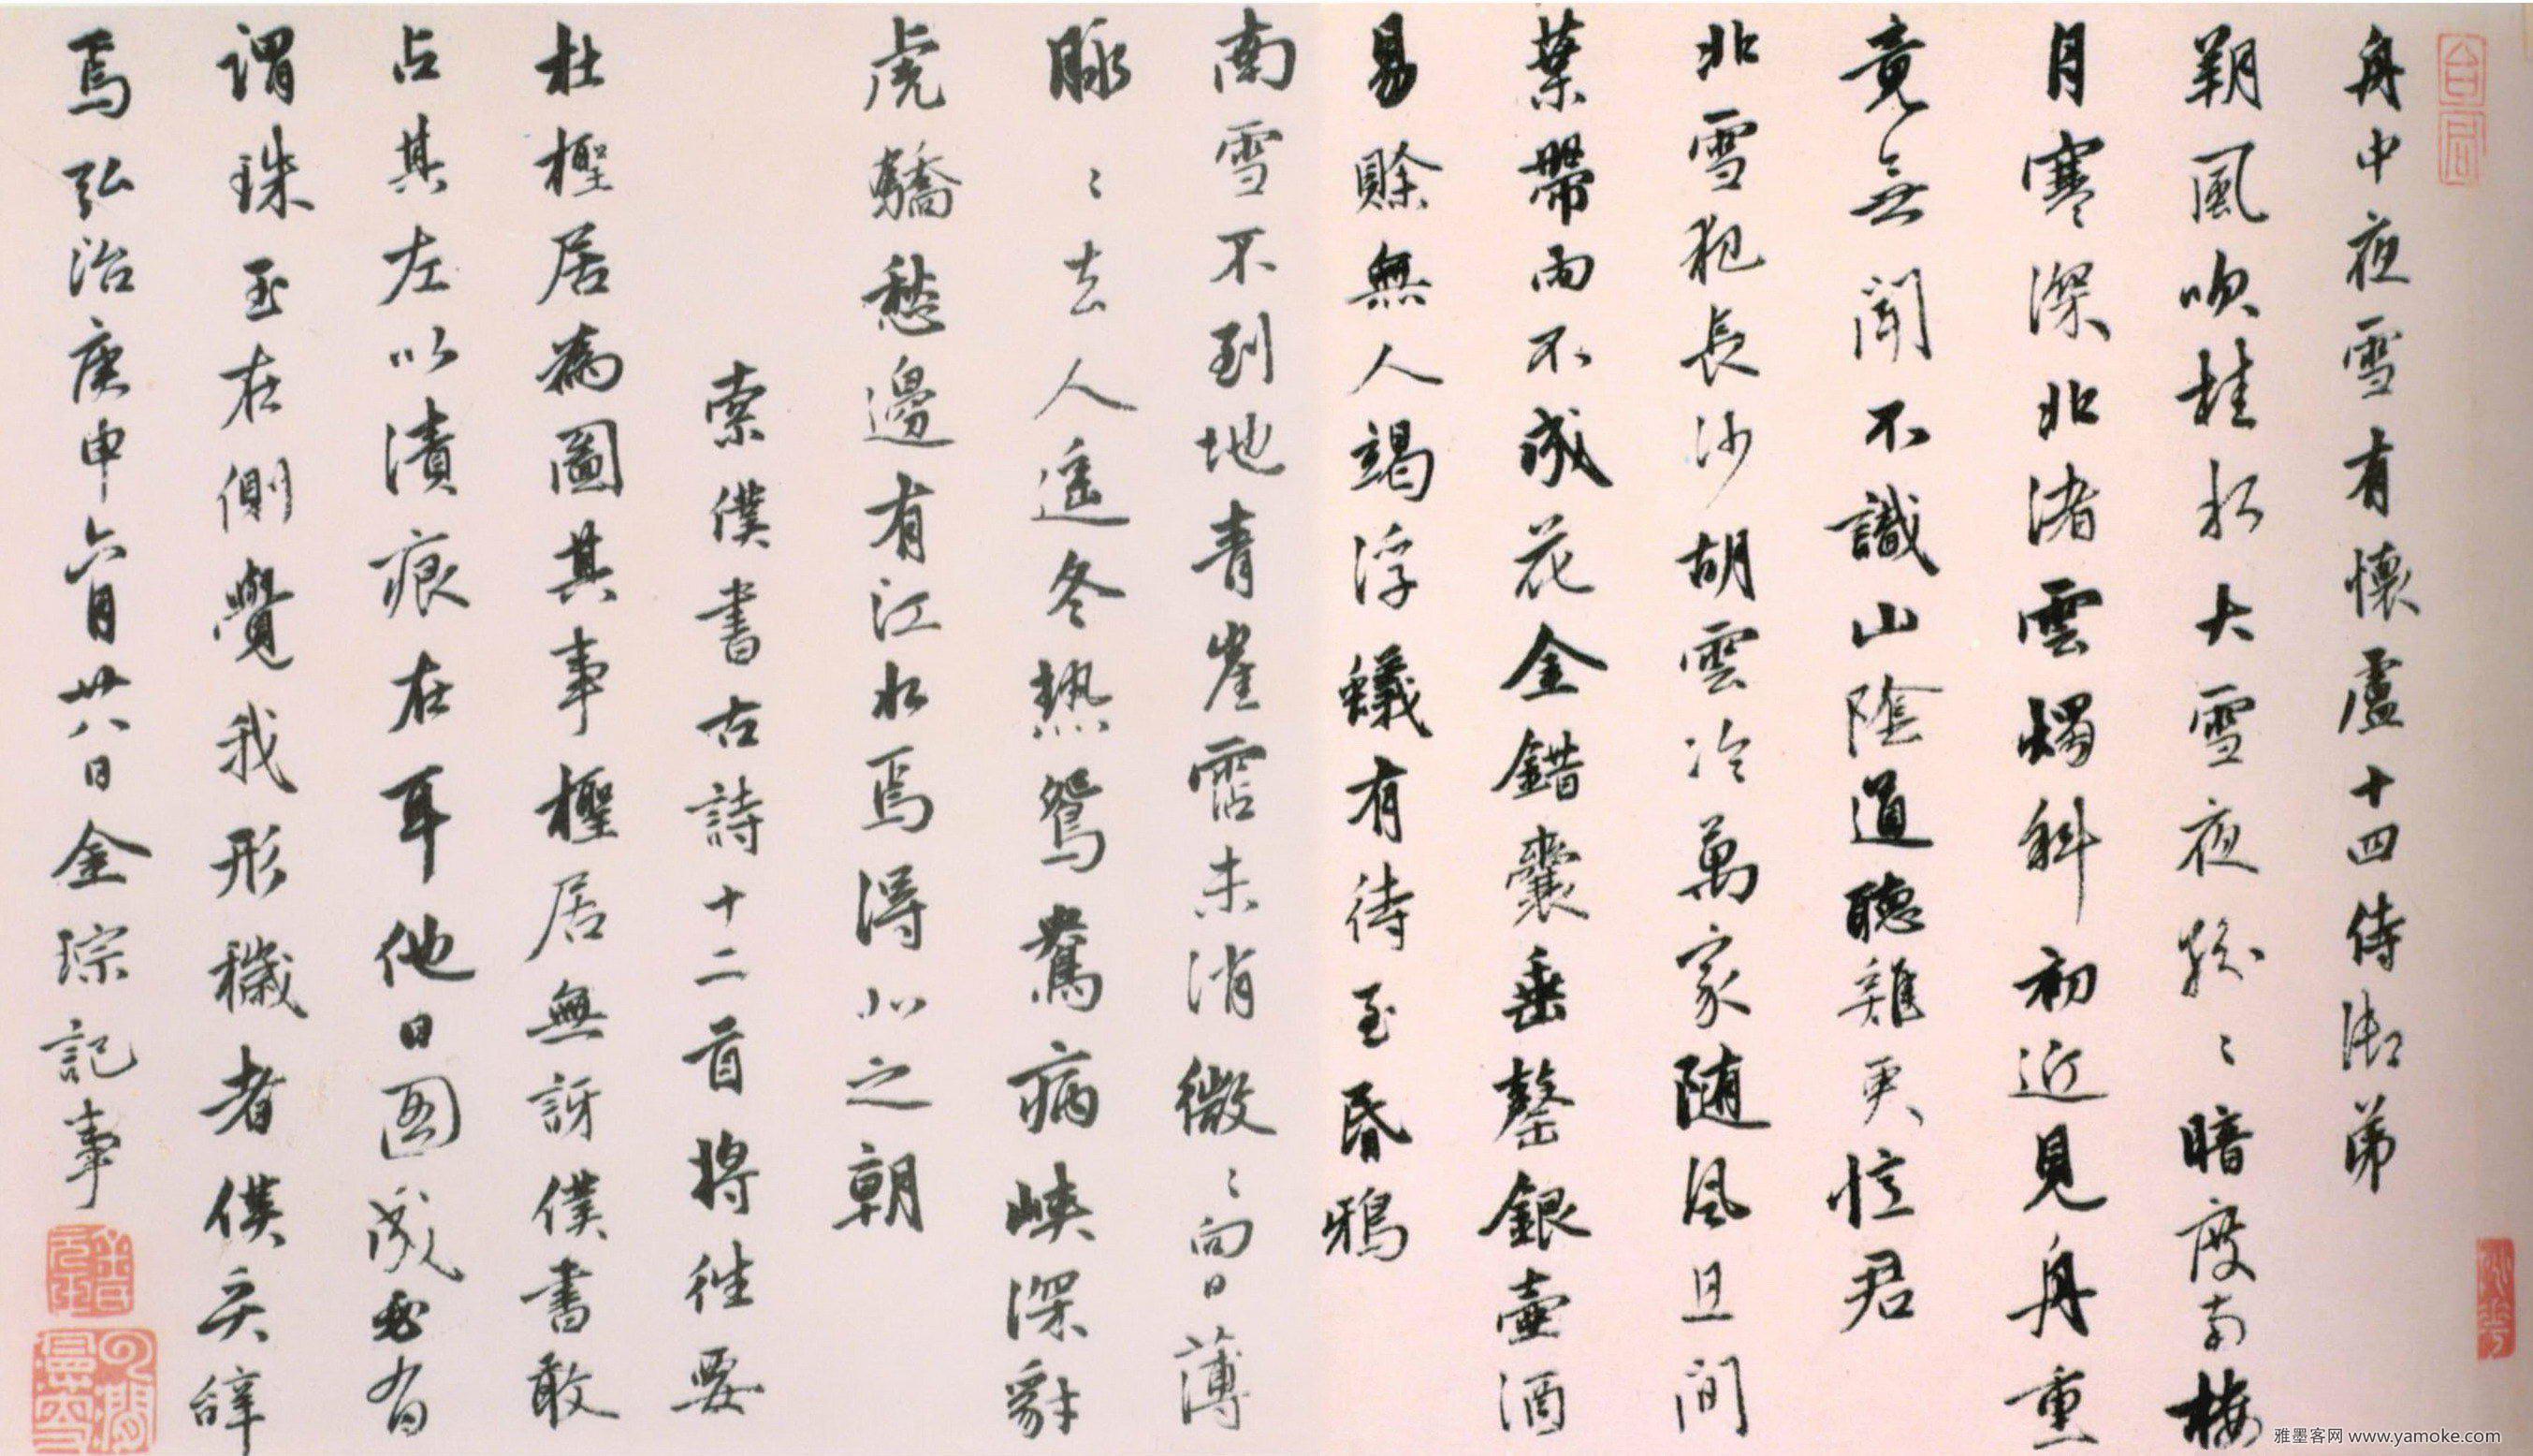 舟中夜雪有懷盧十四侍御弟
朔風吹桂水大雪夜紛〻暗度南樓
月寒深北渚雲燭斜初近見舟重
竟無聞不識山陰道聽雞更憶君
北雪犯長沙胡雲冷萬家隨風且間
葉帶雨不成花金錯囊垂罄銀壺酒
易賒無人竭浮蟻有待至昏鴉
南雪不到地青崖霑未消微〻向日薄
脉〻去人遥冬熱鴛鴦病峽深豺
虎驕愁邊有江水焉得北之朝
索僕書古詩十二首將往要
杜檉居為圖其事檉居無訝僕書敢
占其左以漬痕在耳他日圖成必有
謂珠玉在側覺我形穢者僕奚辭
焉弘治庚申六月廿八日金琮記事
雅墨客网 www.yamoke.com